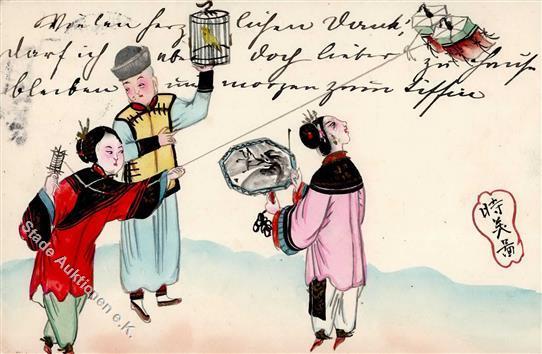 Vielen herzlichen Dank,
darf ich aber doch lieber zu Haus
bleiben und morgen zum Tiffin
時美畫
Stade Auktionen e.K.